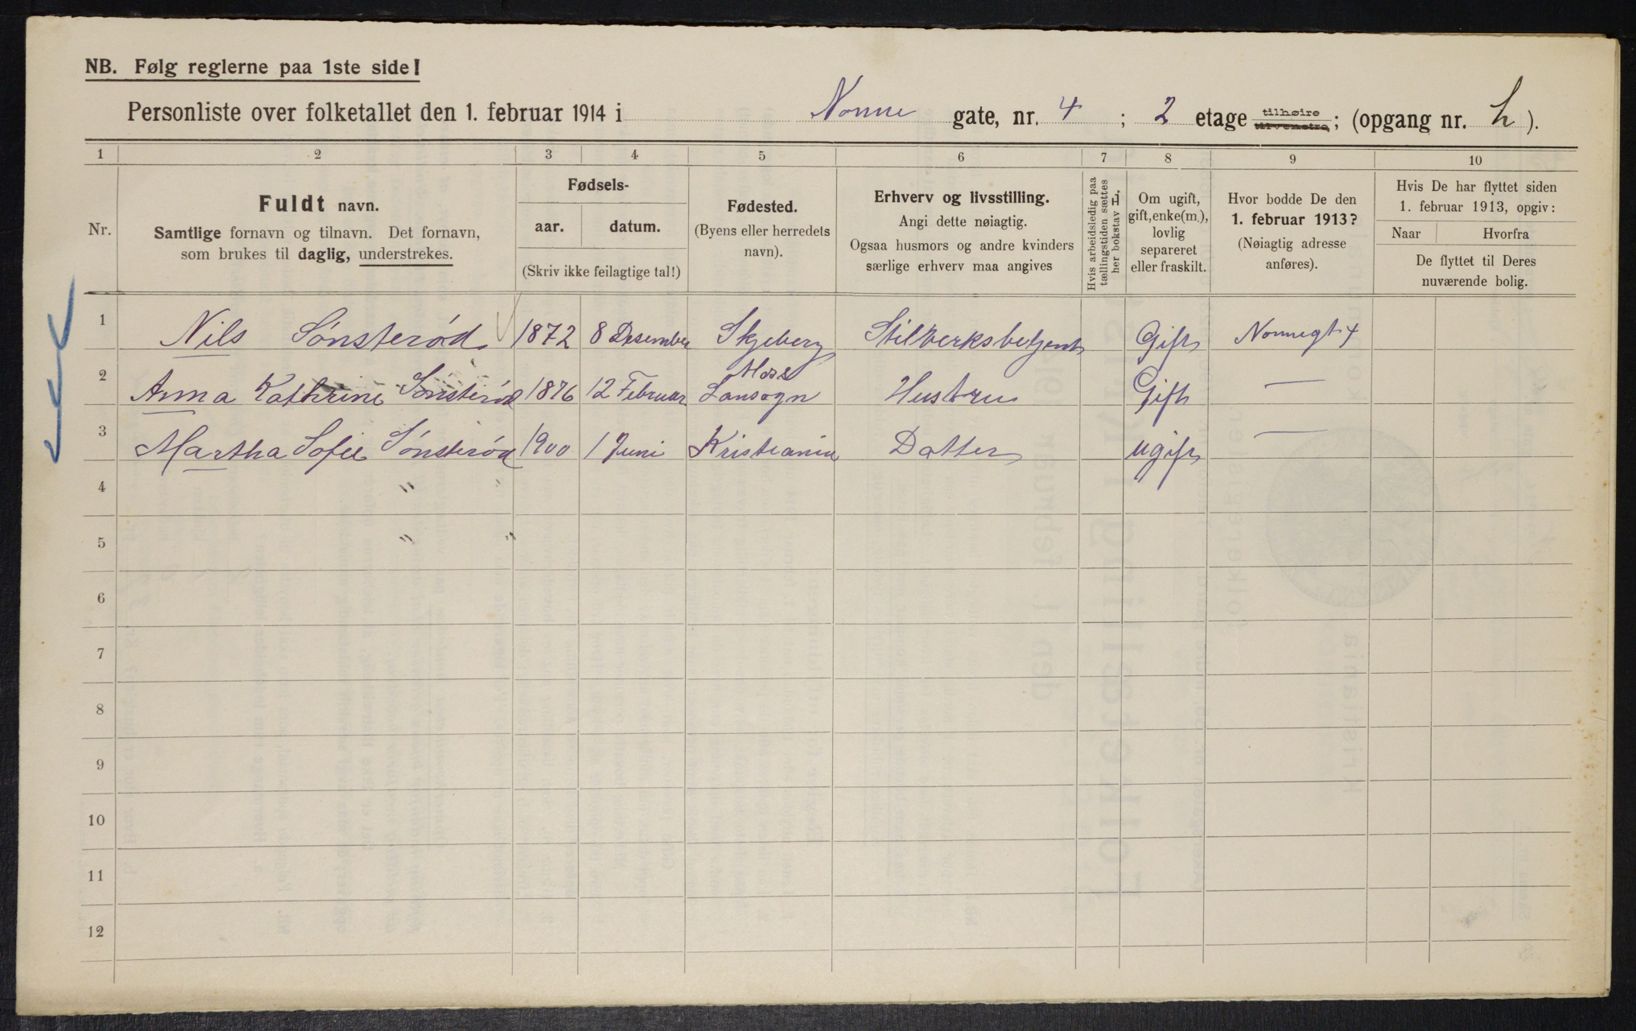 NB. Følg reglerne paa 1ste side!
Personliste over folketallet den 1. februar 1914 i Nonne gate, nr. 4 ; 2 etage tilhøire tilvenstre; (opgang nr. h).
1 2 3 4 5 6 7 8 9 10
Nr.
Fuldt navn.
Samtlige fornavn og tilnavn. Det fornavn,
som brukes til daglig, understrekes.
Fødsels-
aar. datum.
(Skriv ikke feilagtige tal!)
Fødested.
(Byens eller herredets
navn).
Erhverv og livsstilling.
Angi dette nøiagtig.
Ogsaa husmors og andre kvinders
særlige erhverv maa angives
Hvis arbeidsledig paa
tællingstiden sættes
her bokstav L.
Om ugift,
gift, enke(m.),
lovlig
separeret
eller fraskilt.
Hvor bodde De den
1. februar 1913?
(Nøiagtig adresse
anføres).
Hvis De har flyttet siden
1. februar 1913, opgiv:
Naar Hvorfra
De flyttet til Deres
nuværende bolig.
1 Nils Sønsterød 1872 8 Desember Skjeberg Gift Nonnegt 4
Moss
2 Anna Kathrine Sønsterød 1876 12 Februar Lansogn Hustru Gift —
3 Martha Sofie Sønsterød 1900 1 Juni Kristiania Datter ugift —
4 "
5 " "
6
7
8
9
10
11
12